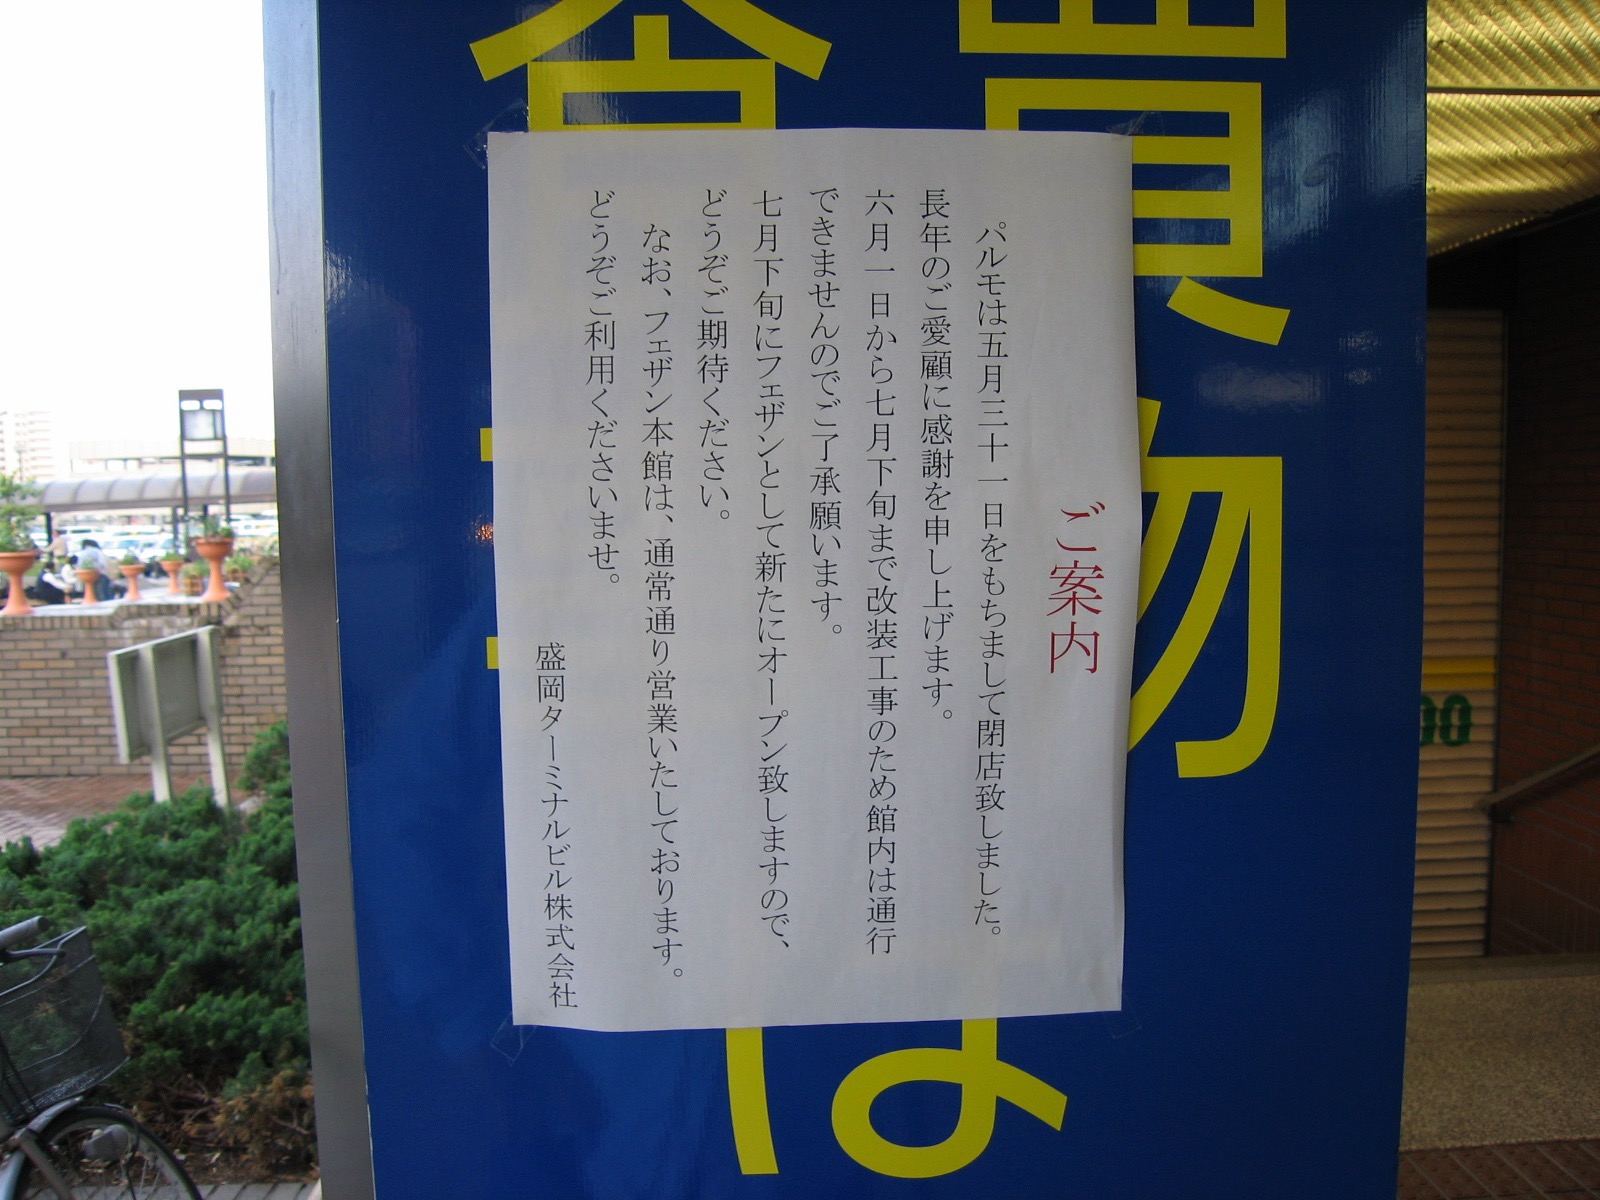 ご案内
パルモは五月三十一日をもちまして閉店致しました。
長年のご愛顧に感謝を申し上げます。
六月一日から七月下旬まで改装工事のため館内は通行
できませんのでご了承願います。
七月下旬にフェザンとして新たにオープン致しますので、
どうぞご期待ください。
なお、フェザン本館は、通常通り営業いたしております。
どうぞご利用くださいませ。
盛岡ターミナルビル株式会社
買物
は